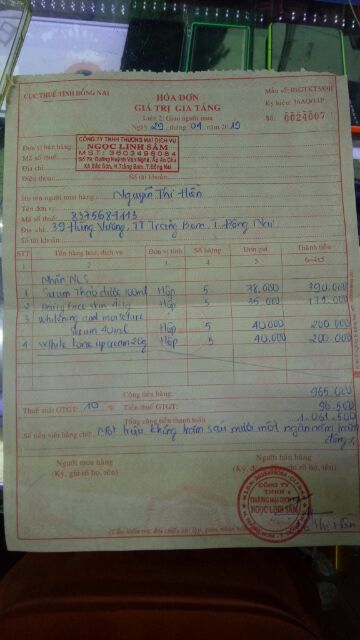 CỤC THUẾ TỈNH ĐỒNG NAI
HÓA ĐƠN
GIÁ TRỊ GIA TĂNG
Liên 2: Giao người mua
Ngày 29 tháng 04 năm 2019
Mẫu số: 01GTKT3/001
Ký hiệu:
Số: 0024007
Đơn vị bán hàng:
CÔNG TY TNHH THƯƠNG MẠI DỊCH VỤ
NGỌC LINH SÂM
MST: 3603498084
Số 79, Đường Huỳnh Văn Nghệ, Ấp An Chu
Xã Bắc Sơn, H.Trảng Bom, T.Đồng Nai
Mã số thuế:
Địa chỉ:
Điện thoại: Số tài khoản:
Họ tên người mua hàng: Nguyễn Thị Hiền
Tên đơn vị:
Mã số thuế:
Địa chỉ: 39 Hùng Vương, TT Trảng Bom, T. Đồng Nai
Số tài khoản:
STT Tên hàng hóa, dịch vụ Đơn vị tính Số lượng Đơn giá Thành tiền
1 2 3 4 5 6=4x5
Nhãn NLS
1 Serum Thảo dược 100ml Hộp 5 78.000 390.000
2 face skin Hộp 5 35.000 175.000
3 Whitening and moisture
serum 40ml Hộp 5 40.000 200.000
4 White cream 20g Hộp 5 40.000 200.000
Cộng tiền hàng: 965.000
Thuế suất GTGT: 10 % Tiền thuế GTGT: 96.500
Tổng cộng tiền thanh toán: 1.061.500
Số tiền viết bằng chữ: Một triệu không trăm sáu mươi mốt ngàn năm trăm
đồng
Người mua hàng
(Ký, ghi rõ họ, tên)
Người bán hàng
(Ký, đóng dấu, ghi rõ họ, tên)
CÔNG TY
TNHH
THƯƠNG MẠI DỊCH VỤ
NGỌC LINH SÂM